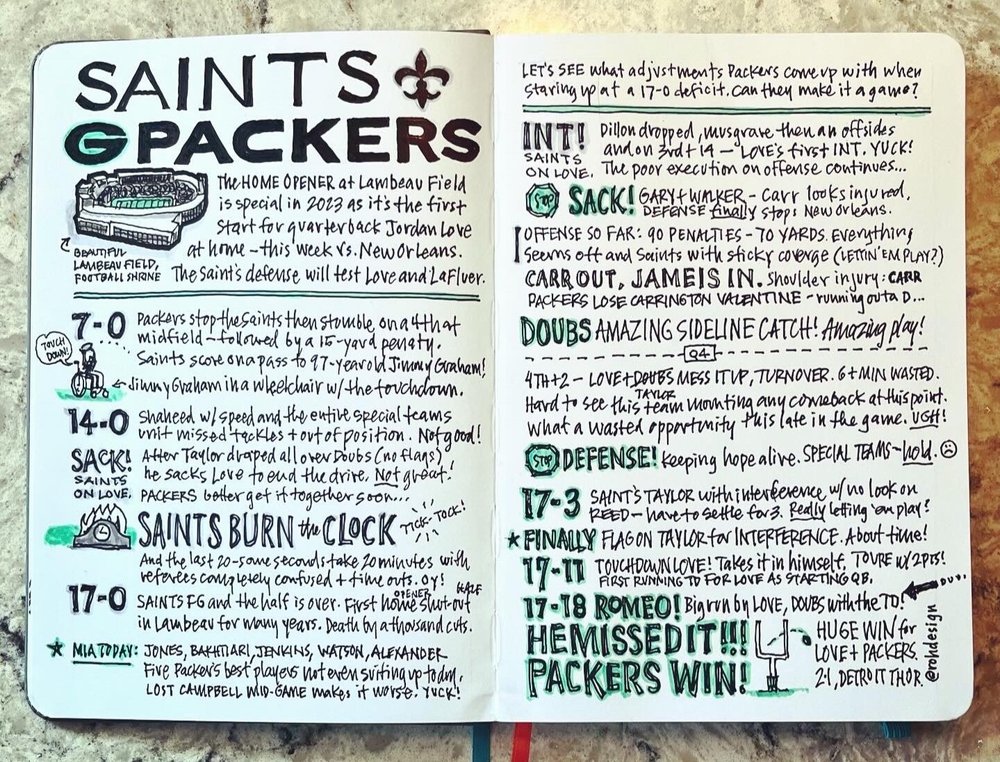 SAINTS
G PACKERS
The HOME OPENER at Lambeau Field
is special in 2023 as it's the first
Start for quarterback Jordan Love
at home – this week vs. New Orleans.
The Saint's defense will test Love and LaFluer.
BEAUTIFUL
LAMBEAU FIELD,
FOOTBALL SHRINE
7-0 Packers stop the Saints then stumble, on a 4th at
midfield – followed by a 15-yard penalty.
Saints score on a pass to 97-year old Jimmy Graham!
TOUCH
DOWN!
Jimmy Graham in a wheelchair w/ the touchdown.
14-0 Shaheed w/ speed and the entire special teams
unit missed tackles + out of position. Not good!
SACK!
SAINTS
ON LOVE.
After Taylor draped all over Doubs (no flags)
he sacks Love to end the drive. Not great!
PACKERS better get it together soon...
SAINTS BURN the CLOCK TICK-TOCK!
And the last 20-some seconds take 20 minutes with
referees completely confused + time outs. oy!
17-0 SAINTS FG and the half is over. First home OPENER shut-out
in Lambeau for many years. Death by a thousand cuts.
MIA TODAY: JONES, BAKHTIARI, JENKINS, WATSON, ALEXANDER
Five Packer's best players not even suiting up today.
LOST CAMPBELL MID-GAME makes it worse. YUCK!
LET'S SEE what adjustments Packers come up with when
staring up at a 17-0 deficit. Can they make it a game?
INT!
SAINTS
ON LOVE.
Dillon dropped, musgrave then an offsides
and on 3rd + 14 – LOVE's first INT. YUCK!
The poor execution on offense continues...
STOP SACK! GARY + WALKER – Carr looks injured,
DEFENSE finally stops New Orleans.
OFFENSE SO FAR: 90 PENALTIES – 70 YARDS. Everything
seems off and Saints with sticky coverge (LETTIN' EM PLAY?)
CARR OUT, JAMEIS IN. Shoulder injury: CARR
PACKERS LOSE CARRINGTON VALENTINE – running outa D...
DOUBS AMAZING SIDELINE CATCH! Amazing play!
Q4
4TH+2 – LOVE + DOUBS TAYLOR MESS IT UP, TURNOVER. 6+ MIN WASTED.
Hard to see this team mounting any comeback at this point.
What a wasted opportunity this late in the game. UGH!
STOP DEFENSE! Keeping hope alive. SPECIAL TEAMS – hold.
17-3 SAINT'S TAYLOR with interference w/ no look on
REED – have to settle for 3. Really letting 'em play!
FINALLY FLAG ON TAYLOR for INTERFERENCE. About time!
17-11 TOUCHDOWN LOVE! Takes it in himself, TOURE w/ 2PTS!
FIRST RUNNING TD FOR LOVE AS STARTING QB.
17-18 ROMEO! Big run by LOVE, DOUBS with the TD!
HE MISSED IT!!!
PACKERS WIN!
HUGE WIN for
LOVE + PACKERS.
2-1, DETROIT THUR.
@rohdesign